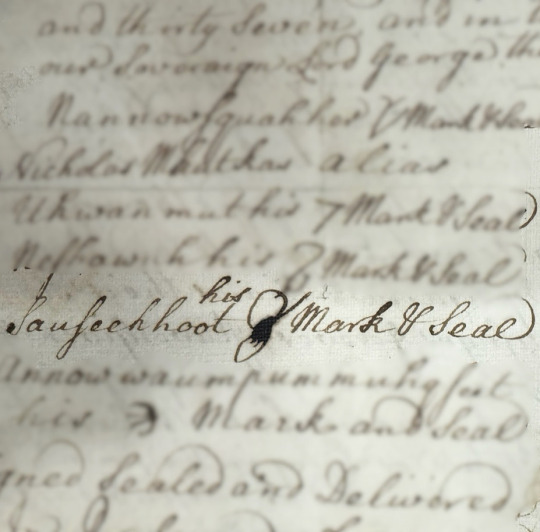 and thirty Seven, and in t
our Sovereign Lord George the
Nannowsquahhor Mark & Sea
Nicholas alias
Ukwanmuthis Mark & Seal
his Mark & Seal
his
Sauseehhoot Mark & Seal
annowwaumpummuhqseet
his Mark and Seal
gned Sealed and Delivered